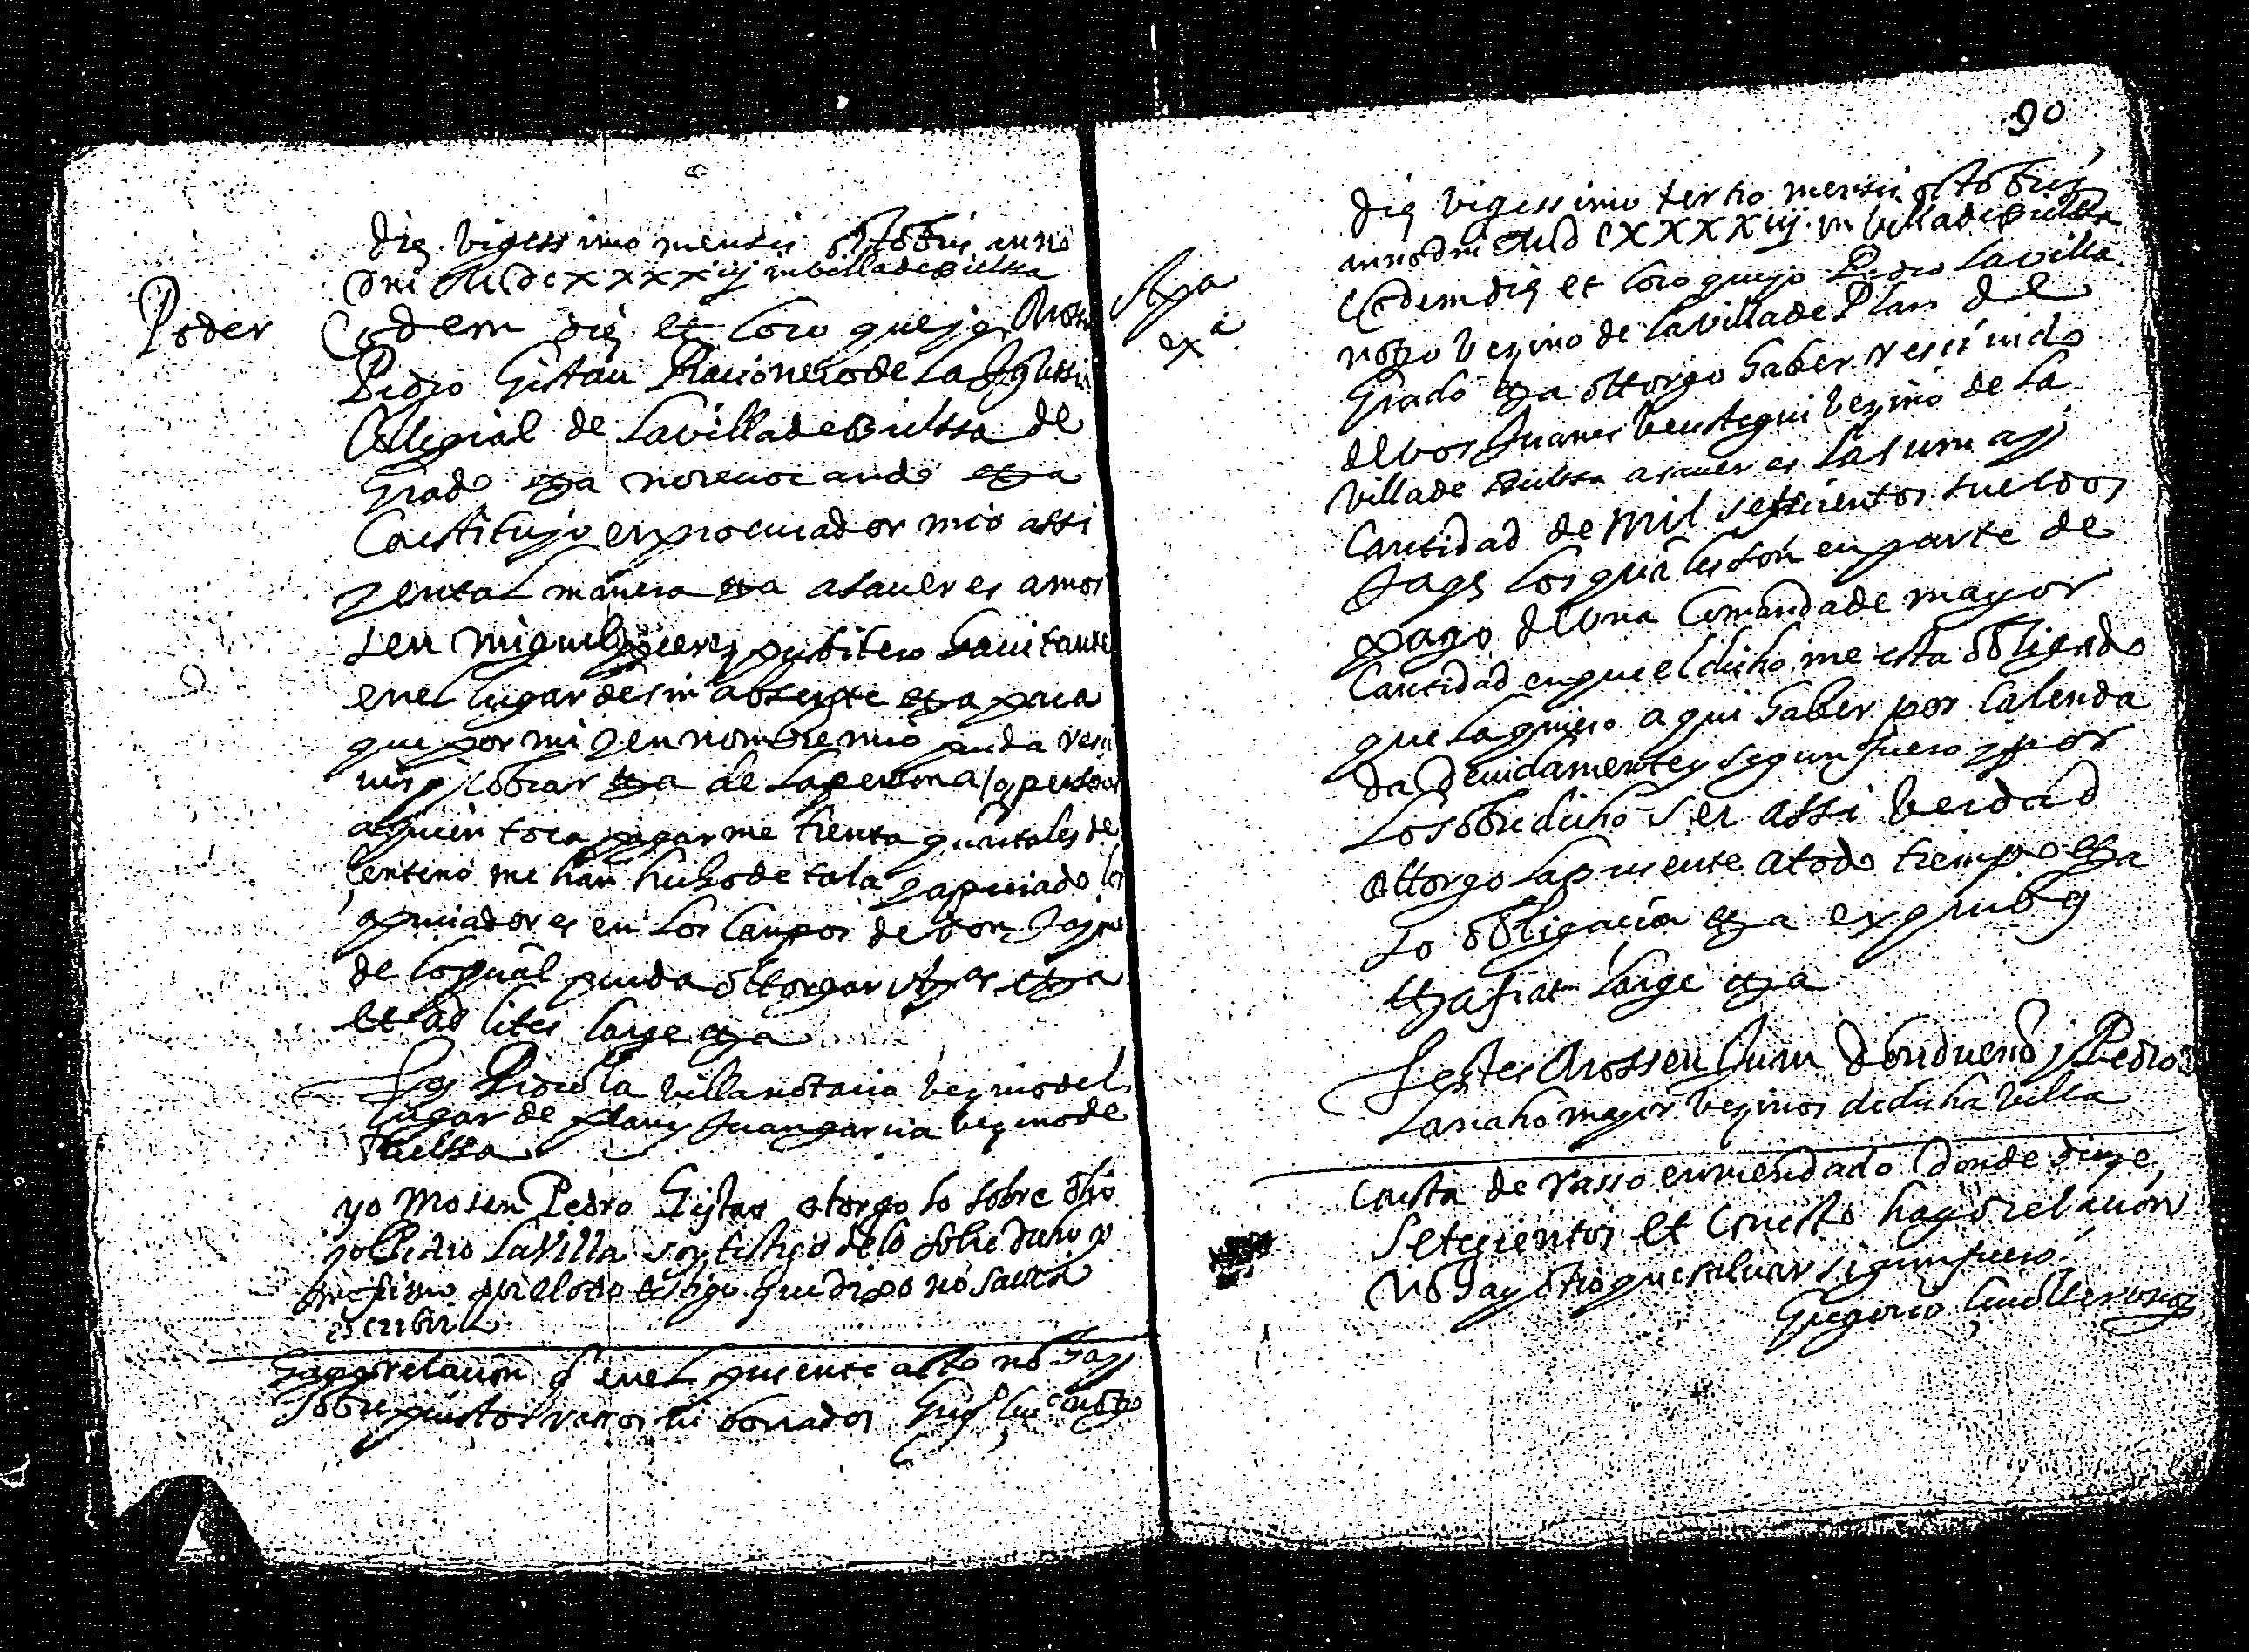 die vigessimo mensis octobris anno
Dni MDCxxxxiij in villa de Bielssa
Poder
Eodem die et loco que yo Mossen
Pedro Gistau Racionero de la Iglessia
Collegial de la villa de Bielssa de
Grado etza no revocando etza
Constituyo en procurador mio assi
y en tal manera etza a saver es a mos
sen Miguel presbitero havitante
en el lugar de sin absente etza para
que por mi y en nombre mio pueda resci
vir y cobrar etza de la persona o personas
a quien toca pagarme trenta quintales de
centeno me han hecho de tala y apreciado los
apreciadores en los campos de
de lo qual pueda ottorgar apas etza
et ad lites large etza
Ts Pedro la villa notario vezino del
lugar de plan y Juan garcia vezino de
Bielssa
yo Mosen Pedro Gistau otorgo lo sobre dho
yo Pedro la Villa soy testigo de lo sobre dicho y
me firmo por el otro testigo que dixo no savia
escribir
Hago relacion q en el presente acto no hay
sobrepuestos rassos ni borrados Greg
90
die vigessimo tertio mensis octobris
anno dni MDCxxxxiij in villa de Bielssa
Apa
exa
Eodem die et loco que yo Pedro la villa
notro vezino de la villa de Plan de
Grado etza ottorgo haber rescivido
de vos Juanes vezino de la
villa de Bielssa a saver es la suma y
cantidad de Mil setecientos sueldos
Jaqs los quales son en parte de
pago de una comanda de mayor
cantidad en que el dicho me esta obligado
que la quiero aqui haber por calenda
da devidamente y segun fuero y por
lo sobredicho ser assi verdad
ottorgo la presente a todo tiempo etza
so obligacion etza ex
etza fiat large etza
Testes Mossen Juan Donduendo y Pedro
mayor vezinos de dicha villa
Consta de rasso enmendado donde dize
setecientos et con esto hago relacion
no hay otro que salvar segun fuero
Gregorio